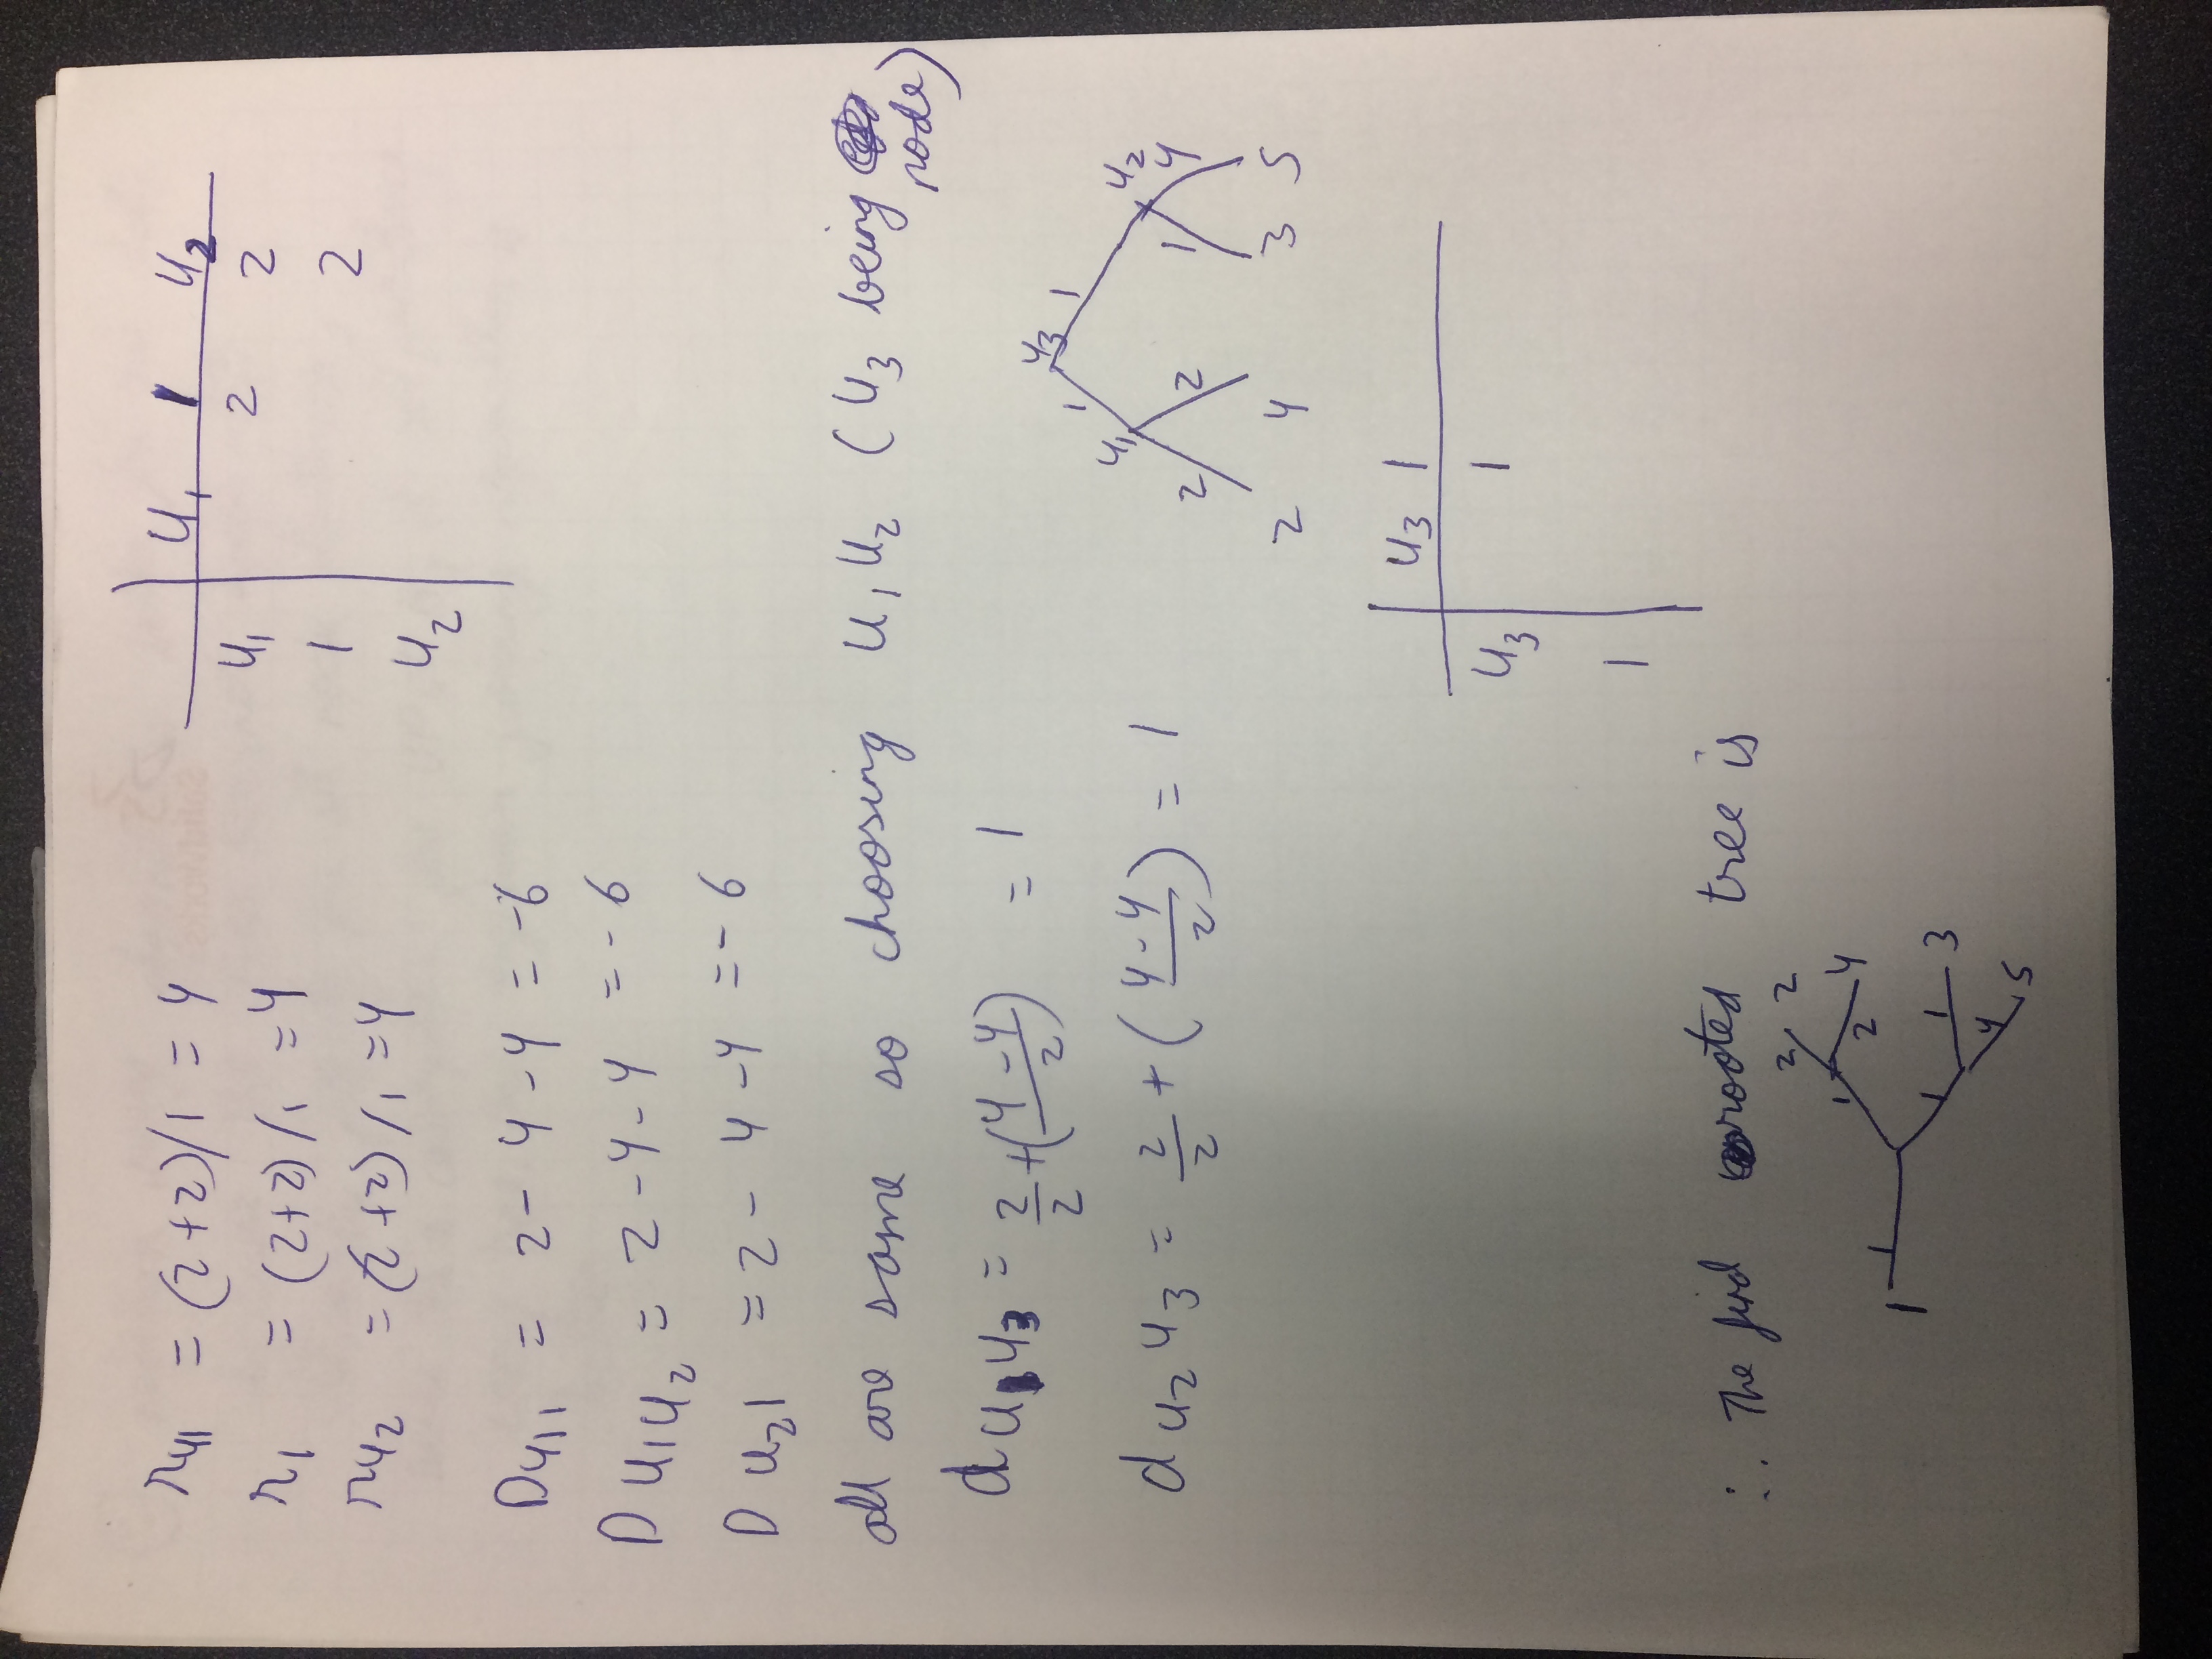 r u1 = (2+2)/1 = 4
r1 = (2+2)/1 = 4
r u2 = (2+2)/1 = 4
u1 1 u2
u1 2 2
1 2
u2
D u1 1 = 2 - 4 - 4 = -6
D u1 u2 = 2 - 4 - 4 = -6
D u2 1 = 2 - 4 - 4 = -6
all are same so choosing u1 u2 (u3 being
node)
d u1 u3 = 2/2 + (4-4/2) = 1
d u2 u3 = 2/2 + (4-4/2) = 1
u3
1 1
u1 u2
2 2 1 4
2 4 3 5
u3 1
u3 1
1
∴ The final rooted tree is
2 2
1 4
2
1 1
1 1 3
4
5